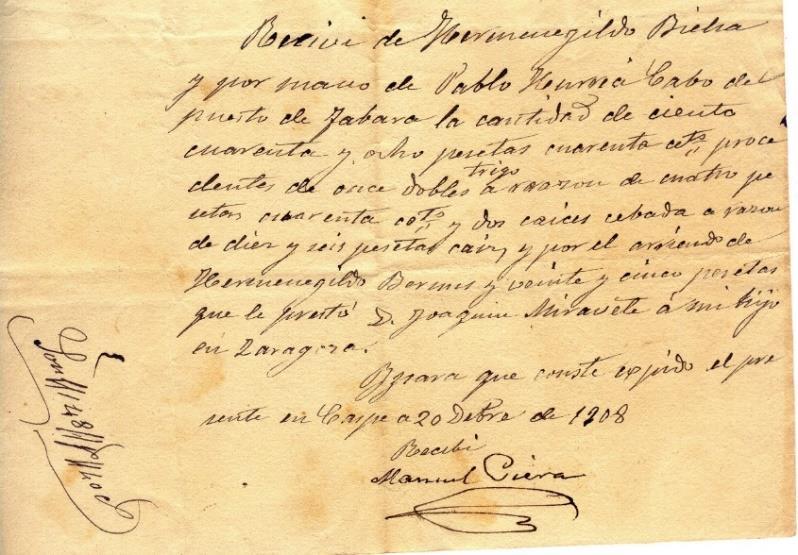 Recivi de Hermenegildo Bielsa
y por mano de Pablo Cabo del
puesto de Fabara la cantidad de ciento
cuarenta y ocho pesetas cuarenta cets proce
dentes de once dobles trigo a razon de cuatro pe
setas cuarenta cets y dos caices cebada a razon
de diez y seis pesetas caiz, y por el arriendo de
Hermenegildo y veinte y cinco pesetas
que le prestó D. Joaquin Miravete á mi hijo
en Zaragoza.
Y para que conste expido el pre
sente en Caspe a 20 Dbre de 1908
Recibi
Manuel Piera